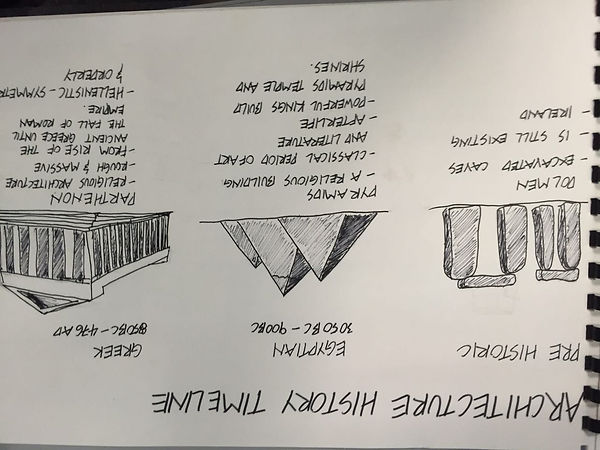 ARCHITECTURE HISTORY TIMELINE
PRE HISTORIC
DOLMEN
- EXCAVATED CAVES
- IS STILL EXISTING
- IRELAND
EGYPTIAN
3050 BC - 900 BC
PYRAMIDS
- A RELIGIOUS BUILDING.
- CLASSICAL PERIOD OF ART
AND LITERATURE
- AFTERLIFE
- POWERFUL KINGS BUILD
PYRAMIDS TEMPLE AND
SHRINES.
GREEK
850 BC - 476 AD
PARTHENON
- RELIGIOUS ARCHITECTURE
- ROUGH & MASSIVE
- FROM THE RISE OF
ANCIENT GREECE UNTIL
THE FALL OF ROMAN
EMPIRE.
- HELLENISTIC - SYMMETR
& ORDERLY